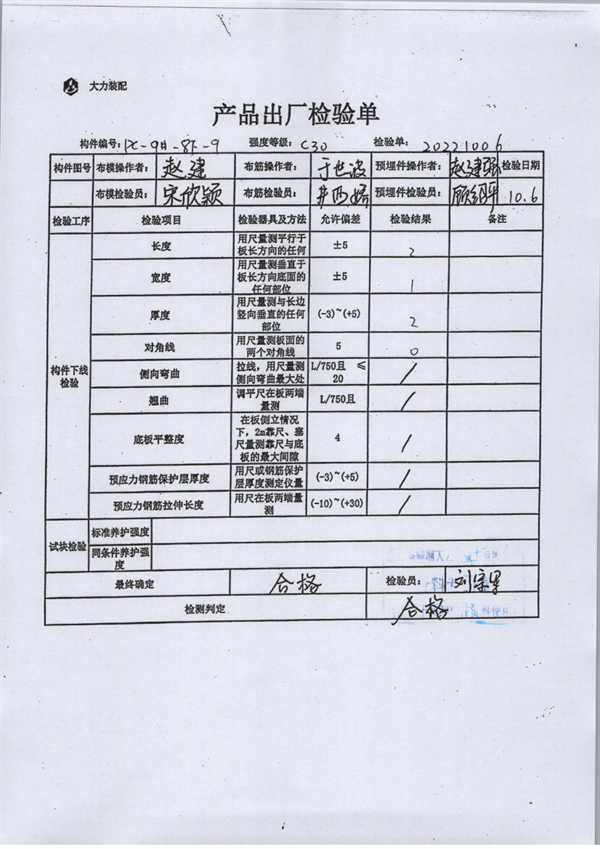 大力装配
产品出厂检验单
构件编号: PC-9#-8F-9 强度等级: C30 检验单: 20221006
构件图号 布模操作者: 赵建 布筋操作者: 于世波 预埋件操作者: 赵建强 检验日期
布模检验员: 宋欣颖 布筋检验员: 预埋件检验员: 10.6
检验工序 检验项目 检验器具及方法 允许偏差 检验结果 备注
构件下线检验
长度 用尺量测平行于板长方向的任何 ±5 2
宽度 用尺量测垂直于板长方向底面的任何部位 ±5 1
厚度 用尺量测与长边竖向垂直的任何部位 (-3)~(+5) 2
对角线 用尺量测板面的两个对角线 5 0
侧向弯曲 拉线，用尺量测侧向弯曲最大处 L/750且 ≤20 /
翘曲 调平尺在板两端量测 L/750且 /
底板平整度 在板侧立情况下，2m靠尺、塞尺量测靠尺与底板的最大间隙 4 /
预应力钢筋保护层厚度 用尺或钢筋保护层厚度测定仪量 (-3)~(+5) /
预应力钢筋拉伸长度 用尺在板两端量测 (-10)~(+30) /
试块检验 标准养护强度
同条件养护强度
最终确定 合格 检验员:
检测判定 合格